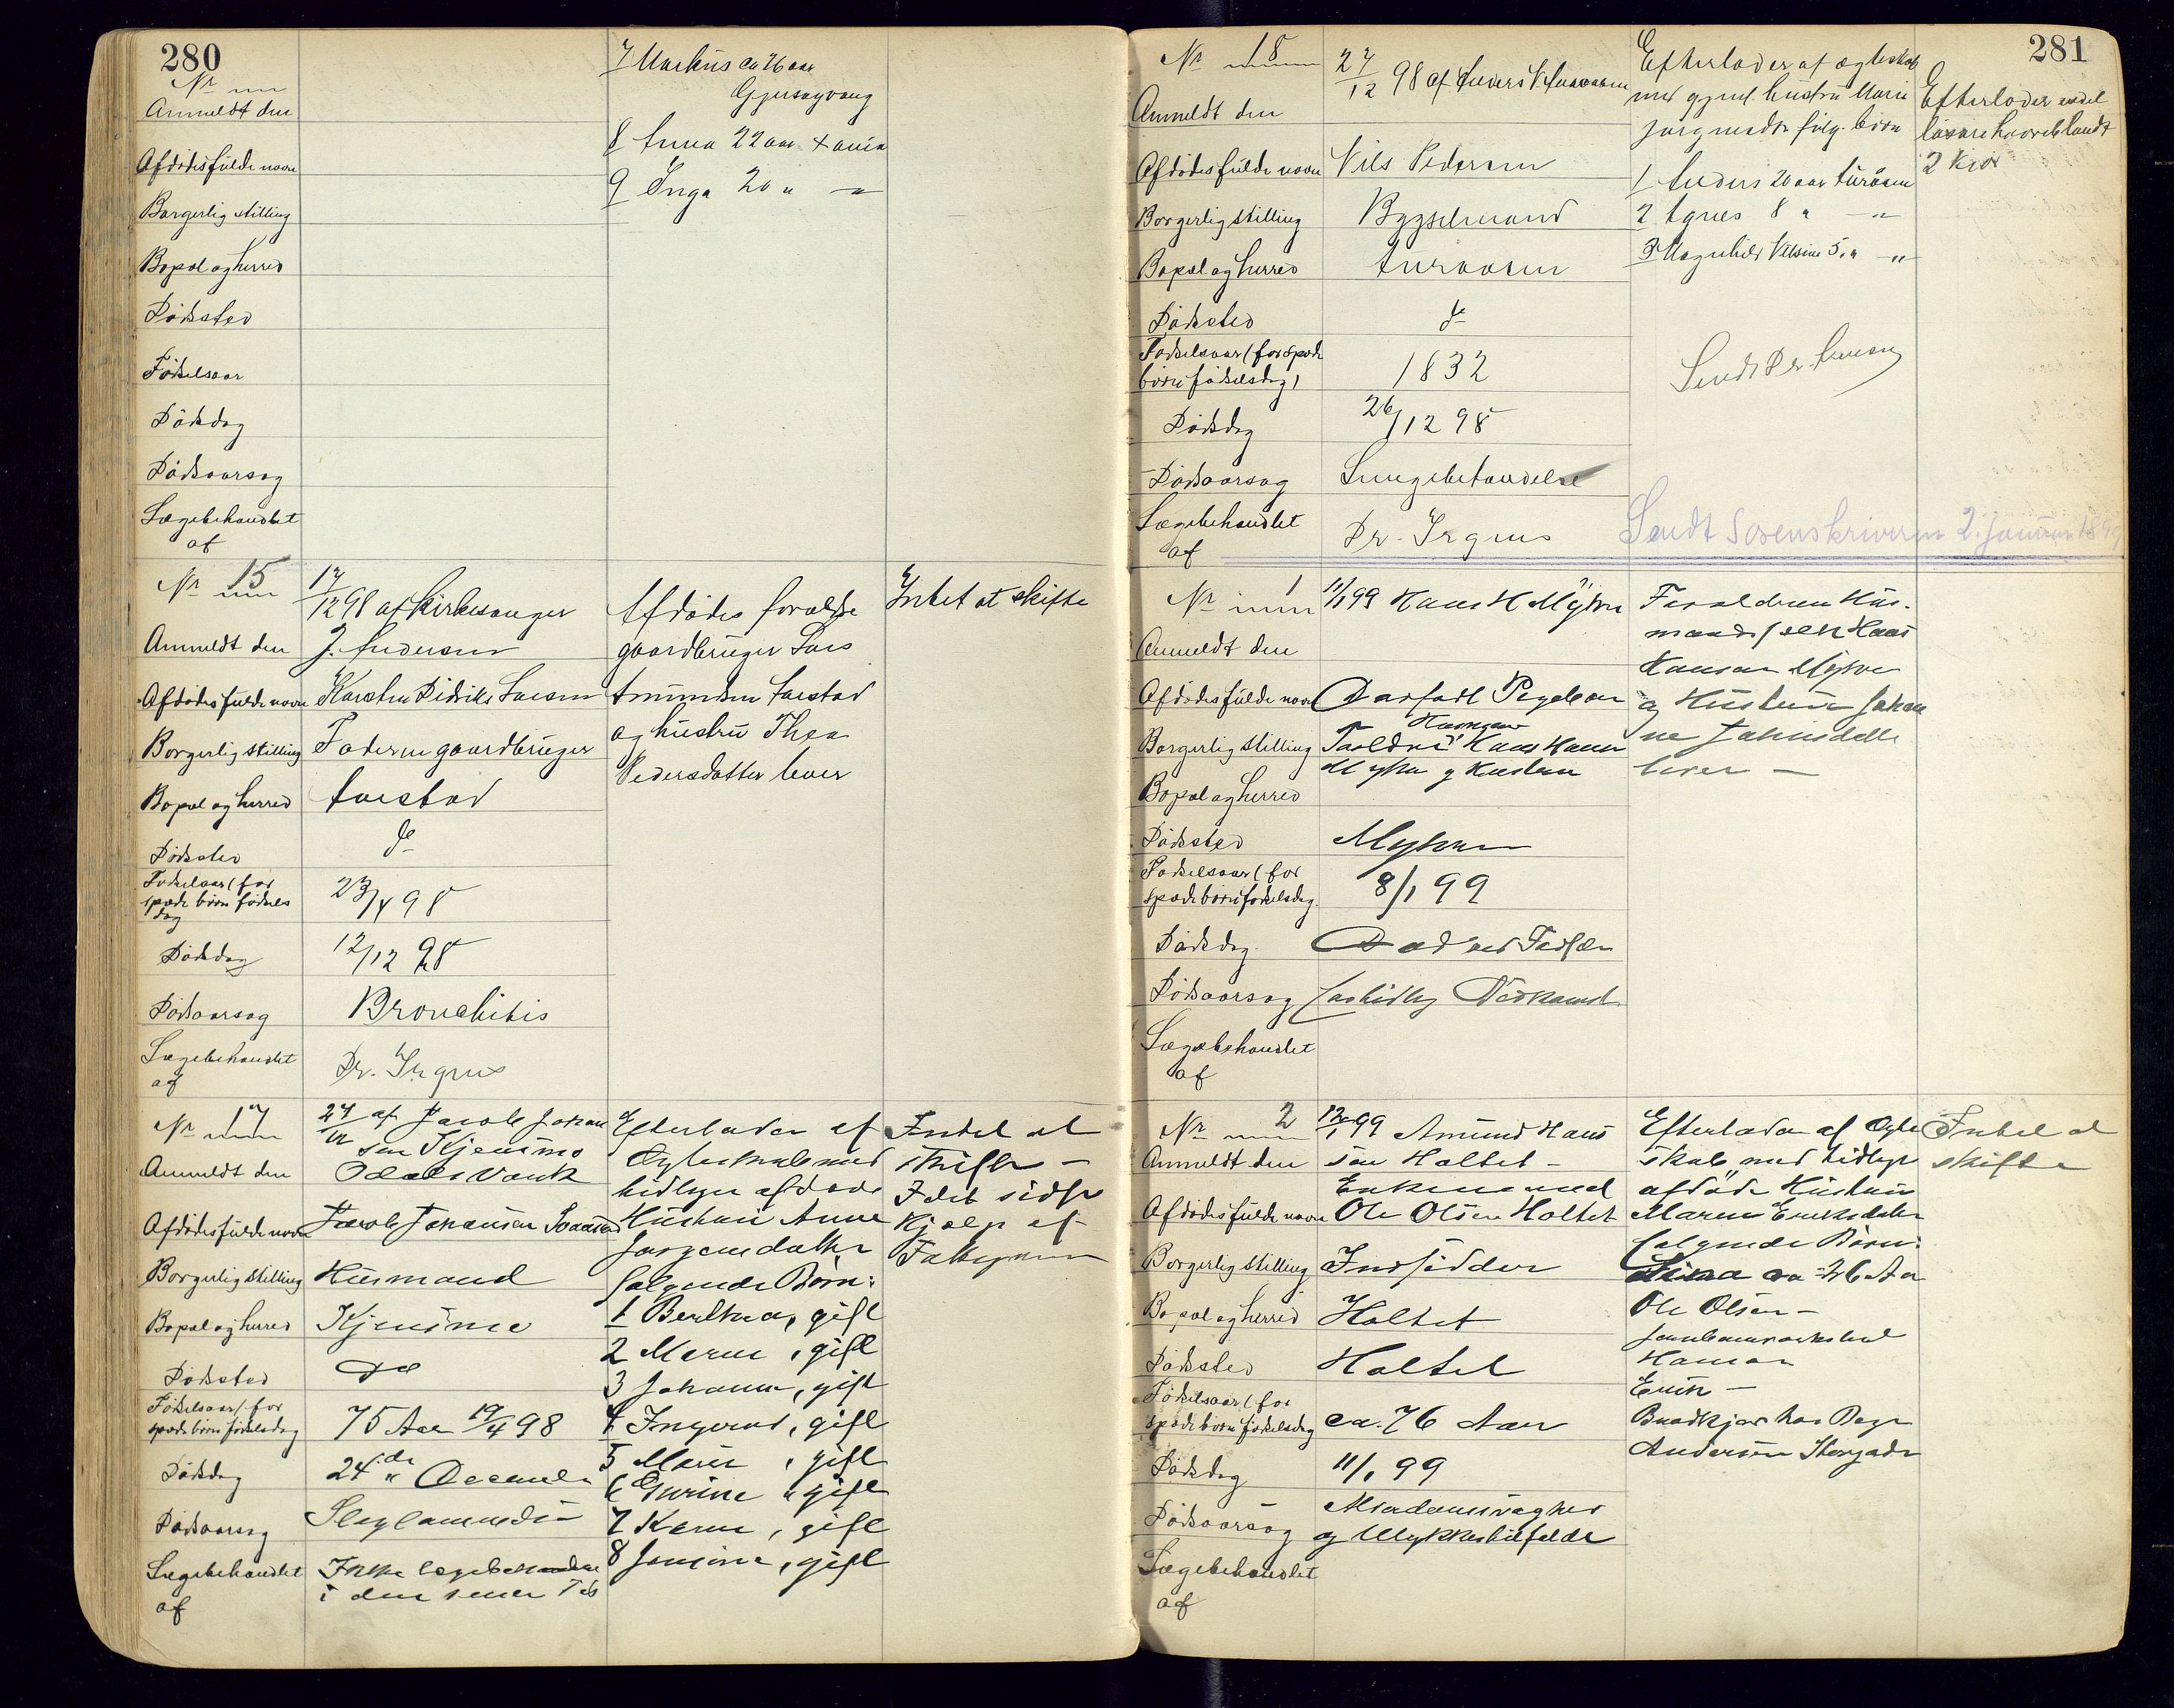 280
Nr
Anmeldt den
Afdødes fulde navn
Borgerlig stilling
Bopæl og herred
Dødssted
Fødselsaar
Dødsdag
Dødsaarsag
Lægebehandlet
af
7 Markus ca 26 aar
8 Anna 22 aar
9 Inga 20 "
Nr 15
Anmeldt den
Afdødes fulde navn
Borgerlig stilling
Bopæl og herred
Dødssted
Fødselsaar (for
spæde børn fødsels
dag
Dødsdag
Dødsaarsag
Lægebehandlet
af
17/12 98 af Kirkesanger
J. Andersen
Karsten Didriks Larsen
Faderen gaardbruger
Aarstad
do
23/4 98
12/12 98
Bronchitis
Dr.
Afdødes forældre
gaardbruger Lars
Amundsen Aarstad
og hustru Thea
Pedersdatter lever
Intet at skifte
Nr 17
Anmeldt den
Afdødes fulde navn
Borgerlig stilling
Bopæl og herred
Dødssted
Fødselsaar (for
spæde børn fødselsdag
Dødsdag
Dødsaarsag
Lægebehandlet
af
27/12 af Jacob Johan
sen Kjensmo
Odals Værk
Jacob Johansen
Husmand
Kjensmo
do
75 Aar 19/4 98
24de Decemb
Ikke lægebehandlet
i den senere Tid
Efterlader af
Ægteskab med
tidligere afdøde
Hustru Anne
Jørgensdatter
følgende Børn:
1 Berthea, gift
2 Maren, gift
3 Johanne, gift
4 Ingeborg, gift
5 Marie, gift
6 Gurine " gift
7 Karen, gift
8 Jensine, gift
Intet at
skifte –
I det sidste
Hjælp af
281
Nr 18
Anmeldt den
Afdødes fulde navn
Borgerlig stilling
Bopæl og herred
Dødssted
Fødselsaar (for spæde
børn fødselsdag)
Dødsdag
Dødsaarsag
Lægebehandlet
af
27/12 98 af Anders
Nils Pedersen
Bygselmand
do
1832
26/12 98
Lungebetændelse
Dr.
Efterlader af ægteskab
med gjenl. hustru Maren
Jørgensdtr følg. børn
1 Anders 20 aar
2 Agnes 8 " "
3 Magnhild Nilsine 5 " "
Efterlader endel
løsøre hvoriblandt
2 Kjør
Sendt Sorenskriveren 2. Januar 1899
Nr 1
Anmeldt den
Afdødes fulde navn
Borgerlig stilling
Bopæl og herred
Dødssted
Fødselsaar (for
spæde børn fødselsdag
Dødsdag
Dødsaarsag
Lægebehandlet
af
11/1 99 Hans H Myhre
Dødfødt Pigebarn
Husmand
Forældre Hans Hansen
Myhre og Hustru
Myhren
8/1 99
Død ved Fødselen
for tidlig Nedkomst
Forældrene Hus-
mand Hans
Hansen Myhre
og Hustru Johan
ne
lever –
Nr 2
Anmeldt den
Afdødes fulde navn
Borgerlig stilling
Bopæl og herred
Dødssted
Fødselsaar (for
spæde børn fødselsdag
Dødsdag
Dødsaarsag
Lægebehandlet
af
12/1 99 Amund Hans
sen Holtet –
Enkemand
Ole Olsen Holtet
Indsidder
Holtet
Holtet
ca. 76 Aar
11/1 99
Alderdomssvaghed
og Ulykkestilfælde
Efterlader af Ægte
skab med tidligere
afdøde Hustru
Maren Eriksdatter
følgende Børn:
Lina ca 26 Aar
Ole Olsen –
Hamar
Erik –
Andersen
Intet at
skifte